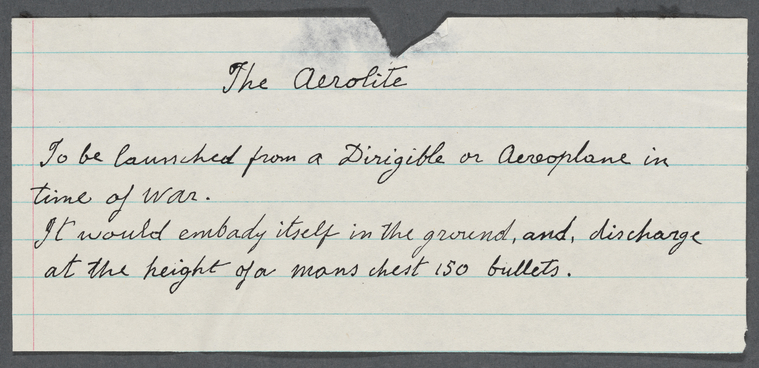 The Aerolite
To be launched from a Dirigible or Aereoplane in
time of War.
It would embady itself in the ground, and, discharge
at the height of a mans chest 150 bullets.